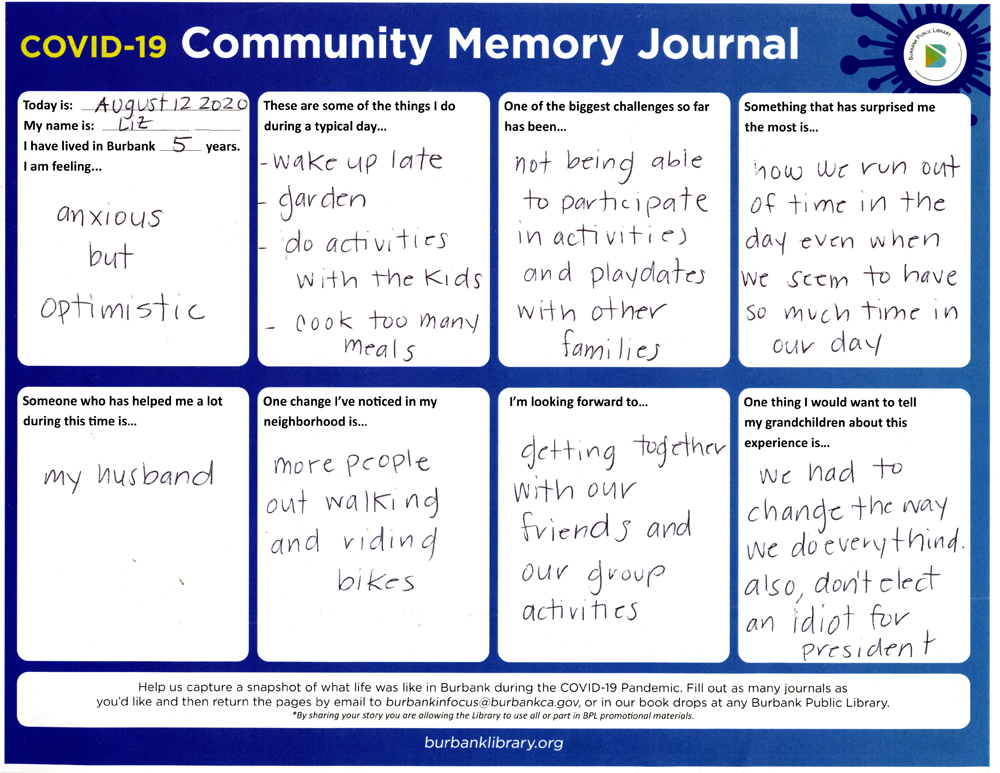 COVID-19 Community Memory Journal
BURBANK PUBLIC LIBRARY
B
Today is: AUGUST 12 2020
My name is: LIZ
I have lived in Burbank 5 years.
I am feeling...
anxious
but
optimistic
These are some of the things I do
during a typical day...
- wake up late
- garden
- do activities
with the kids
- cook too many
meals
One of the biggest challenges so far
has been...
not being able
to participate
in activities
and playdates
with other
families
Something that has surprised me
the most is...
how we run out
of time in the
day even when
we seem to have
so much time in
our day
Someone who has helped me a lot
during this time is...
my husband
One change I've noticed in my
neighborhood is...
more people
out walking
and riding
bikes
I'm looking forward to...
getting together
with our
friends and
our group
activities
One thing I would want to tell
my grandchildren about this
experience is...
we had to
change the way
we do everythind.
also, don't elect
an idiot for
president
Help us capture a snapshot of what life was like in Burbank during the COVID-19 Pandemic. Fill out as many journals as
you'd like and then return the pages by email to burbankinfocus@burbankca.gov, or in our book drops at any Burbank Public Library.
*By sharing your story you are allowing the Library to use all or part in BPL promotional materials.
burbanklibrary.org